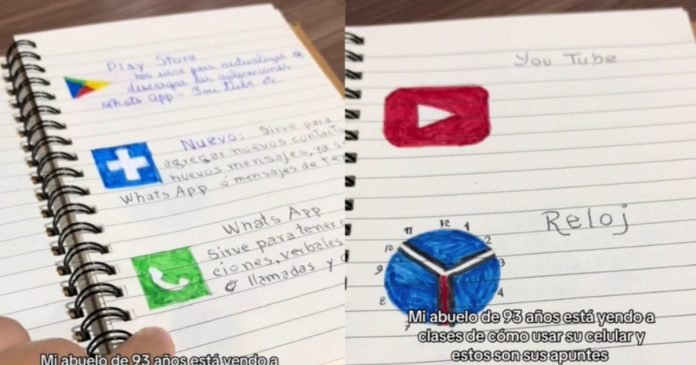 Play Store
nos sirve para actualizar y
descargar las aplicaciones
WhatsApp - YouTube etc
Nuevo: Sirve para
agregar nuevos contact
nuevos mensajes, ya s
WhatsApp ó mensajes de te
WhatsApp
Sirve para tener
ciones, verbales
ó llamadas y
Mi abuelo de 93 años está yendo a
You Tube
Reloj
11 12 1
10 2
9 3
8 4
7
Mi abuelo de 93 años está yendo a
clases de cómo usar su celular y
estos son sus apuntes